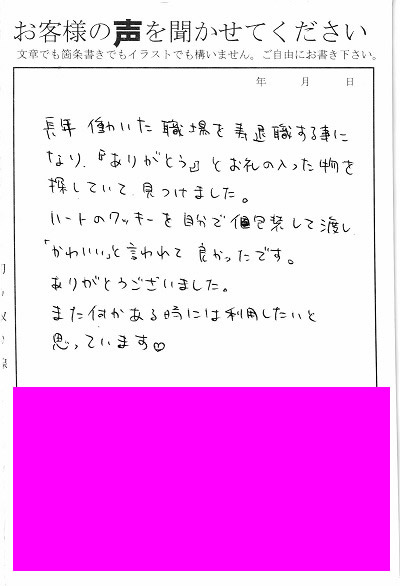 お客様の声を聞かせてください
文章でも箇条書きでもイラストでも構いません。ご自由にお書き下さい。
年 月 日
長年 働いた 職場を 寿退職する事に
なり、『ありがとう』とお礼の入った物を
探していて 見つけました。
ハートのクッキーを自分で個包装して渡し
「かわいい」と言われて 良かったです。
ありがとうございました。
また何かある時には利用したいと
思っています♡